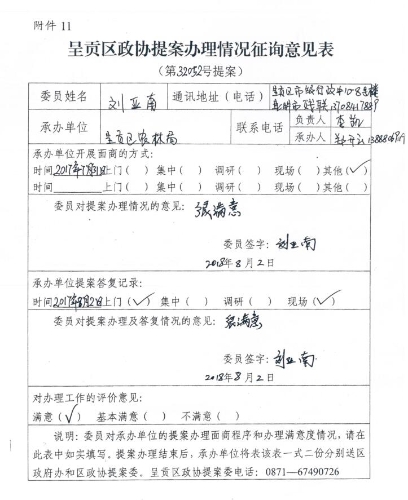 附件 11
呈贡区政协提案办理情况征询意见表
（第32052号提案）
委员姓名 刘亚南 通讯地址（电话） 呈贡区市级行政中心8号楼
昆明市残联13708417889
承办单位 呈贡区农林局 联系电话 负责人 李凯
承办人
承办单位开展面商的方式：
时间2017年7月31日上门（ ）集中（ ） 调研（ ）现场（ ）其他（✓）
时间 上门（ ）集中（ ） 调研（ ）现场（ ）其他（ ）
委员对提案办理情况的意见：很满意
委员签字：刘亚南
2018年8月2日
承办单位提案答复记录：
时间2017年8月2日上门（✓）集中（ ） 调研（ ） 现场（✓）
委员对提案办理及答复情况的意见：很满意
委员签字：刘亚南
2018年8月2日
对办理工作的评价意见：
满意（✓） 基本满意（ ） 不满意（ ）
说明：委员对承办单位的提案办理面商程序和办理满意度情况，请在
此表中如实填写。提案办理结束后，承办单位将表该表一式二份分别送区
政府办和区政协提案委。呈贡区政协提案委电话：0871—67490726